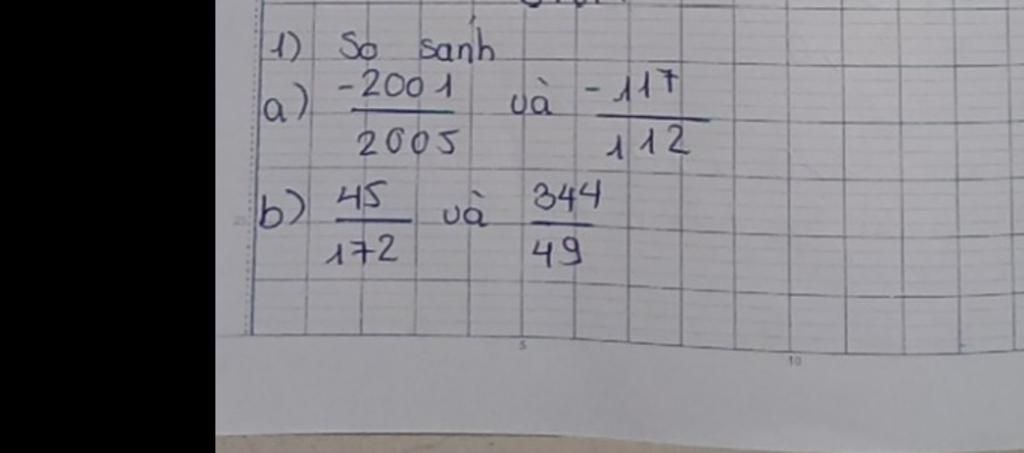 1) So sánh
a) -2001/2005 và -117/112
b) 45/172 và 344/49
5
10